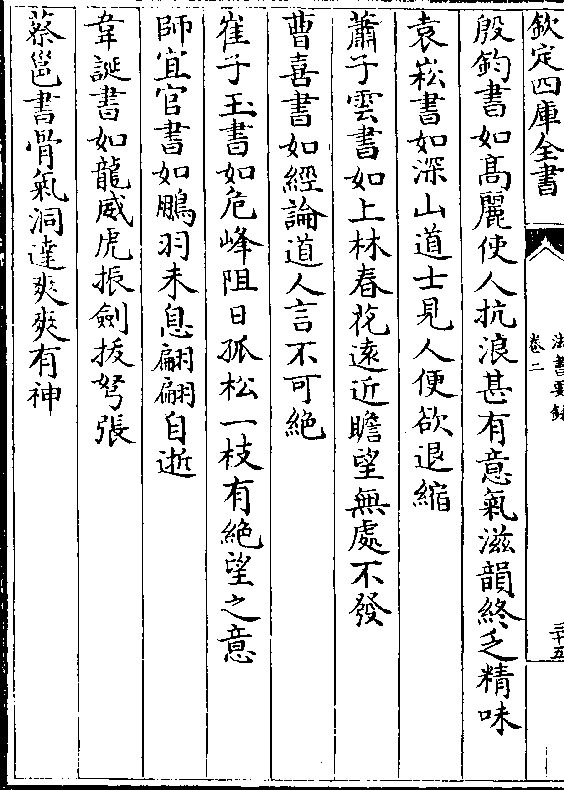 欽定四庫全書
法書要錄
卷二
三十五
殷鈞書如高麗使人抗浪甚有意氣滋韻終乏精味
袁崧書如深山道士見人便欲退縮
蕭子雲書如上林春花遠近瞻望無處不發
曹喜書如經論道人言不可絶
崔子玉書如危峰阻日孤松一枝有絶望之意
師宜官書如鵬羽未息翩翩自逝
韋誕書如龍威虎振劍拔弩張
蔡邕書骨氣洞達爽爽有神